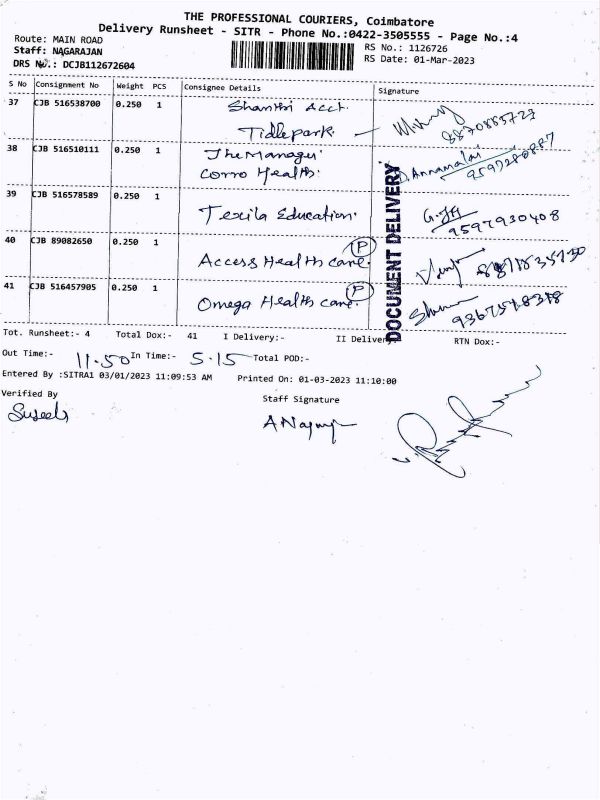 THE PROFESSIONAL COURIERS, Coimbatore
Delivery Runsheet - SITR - Phone No.:0422-3505555 - Page No.:4
Route: MAIN ROAD
RS No.: 1126726
Staff: NAGARAJAN
RS Date: 01-Mar-2023
DRS No.: DCJB112672604
S No Consignment No Weight PCS Consignee Details Signature
37 CJB 516538700 0.250 1 Shanthi Acct.
Tidlepark. —
38 CJB 516510111 0.250 1 The Manager
Corro Health. D. Annamalai
39 CJB 516578589 0.250 1
Texila Education. 9597930408
40 CJB 89082650 0.250 1 P
Access Health care.
41 CJB 516457905 0.250 1 P
Omega Health care.
DOCUMENT DELIVERY
Tot. Runsheet:- 4 Total Dox:- 41 I Delivery:- II Delivery:- RTN Dox:-
Out Time:- 11.50 In Time:- 5.15 Total POD:-
Entered By :SITRA1 03/01/2023 11:09:53 AM Printed On: 01-03-2023 11:10:00
Verified By Staff Signature